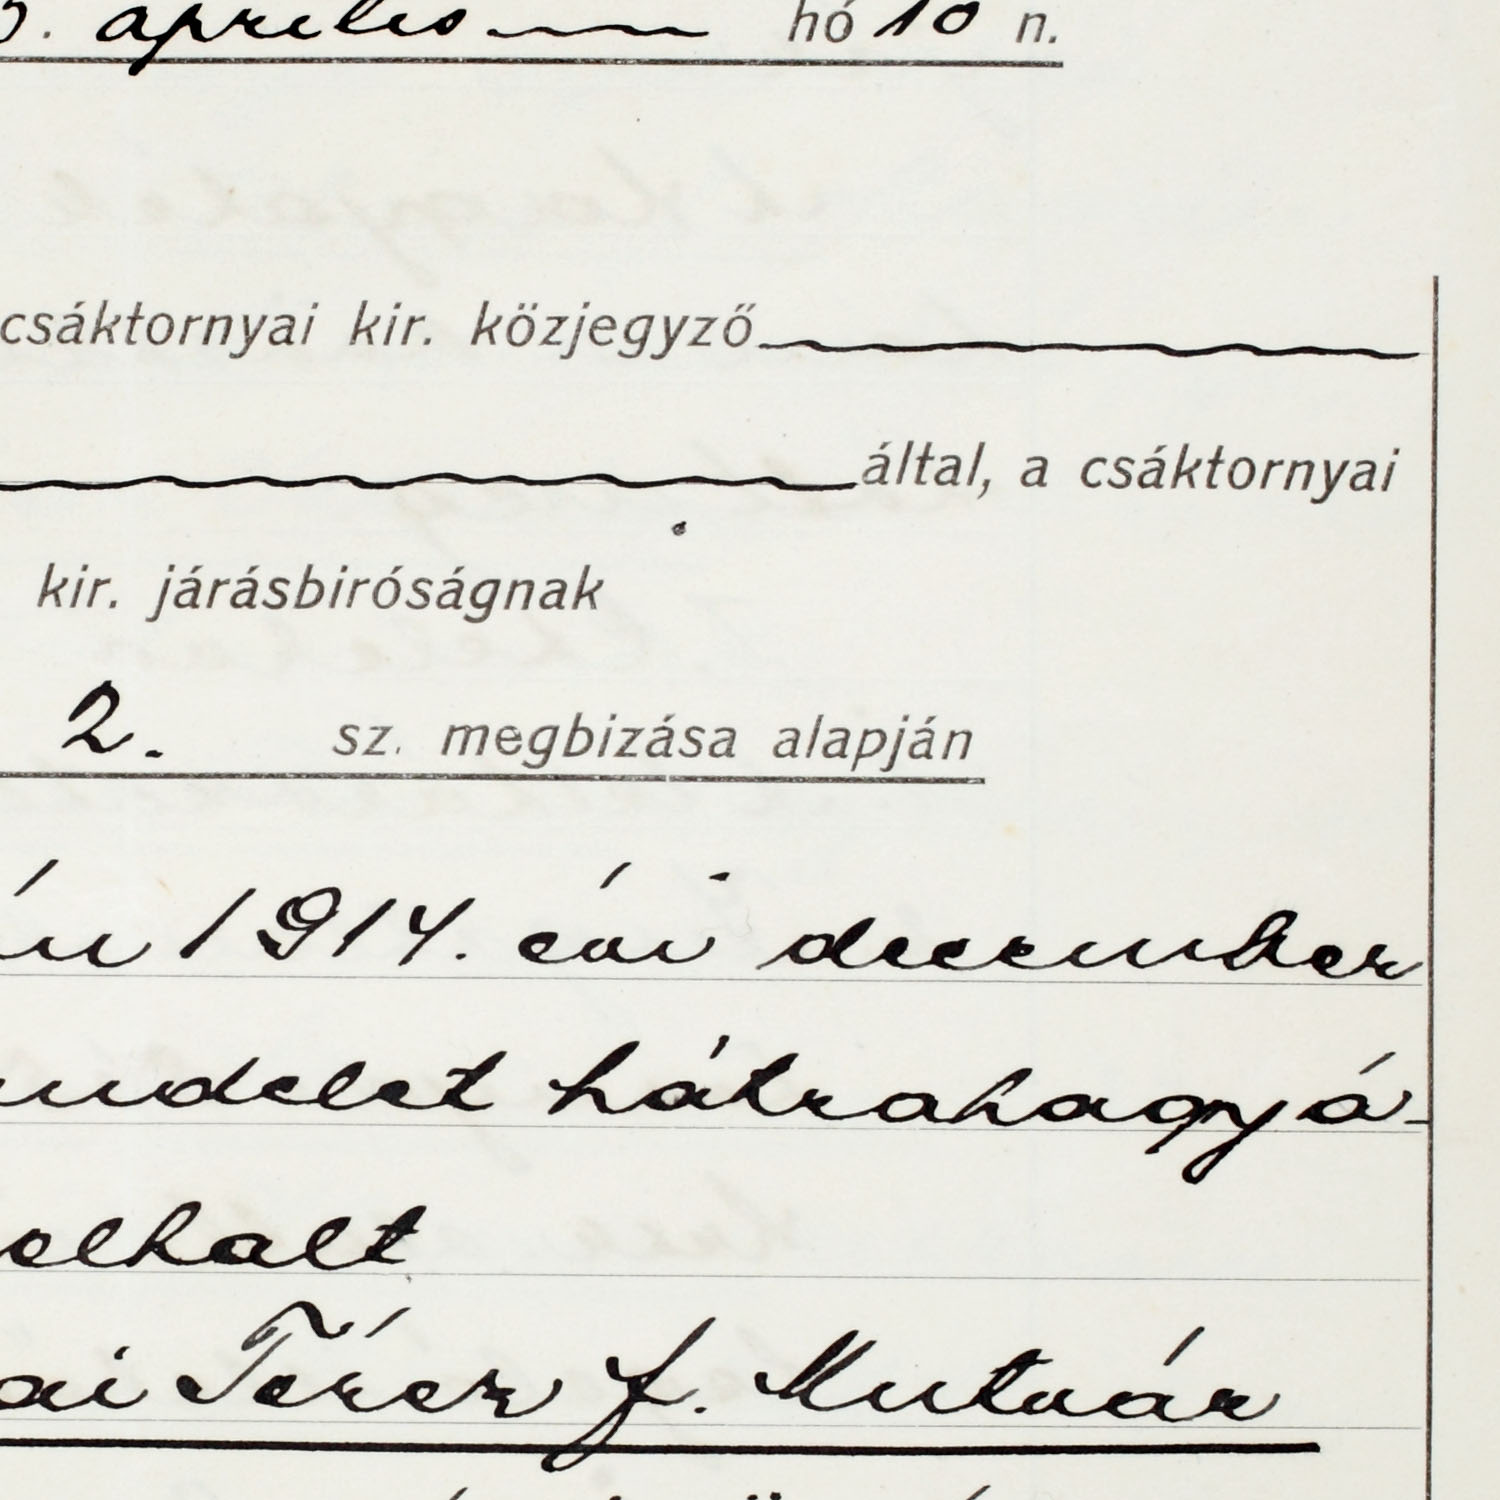 5. április hó 10 n.
csáktornyai kir. közjegyző
által, a csáktornyai
kir. járásbiróságnak
2. sz. megbizása alapján
1914. évi december
hátrahagyá-
elhalt
Teréz f. Mutvár